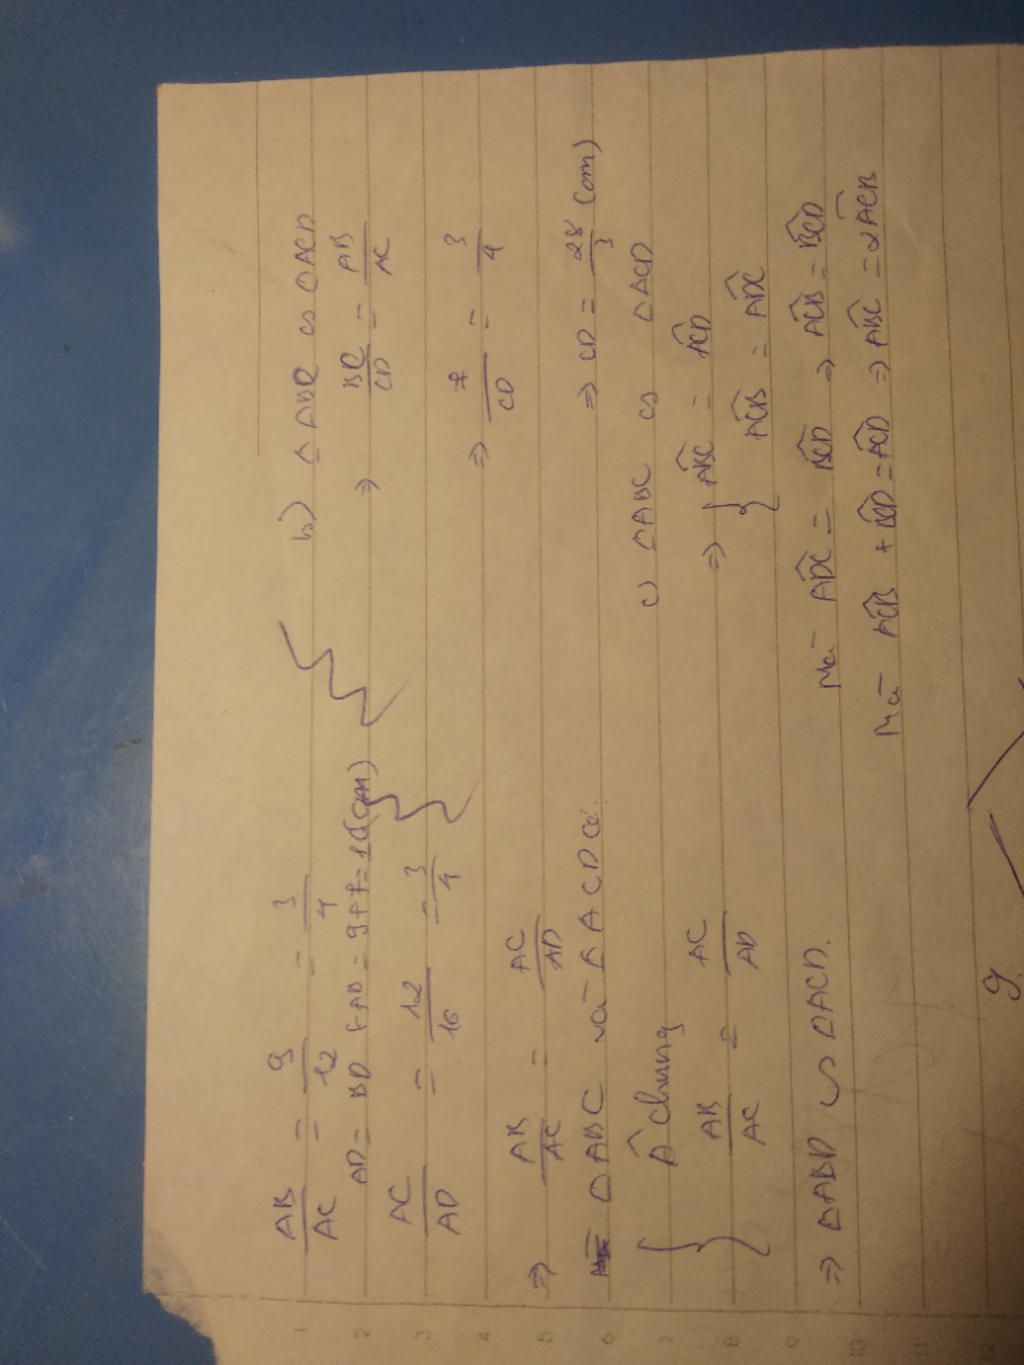 AB/AC = 9/12 = 3/4
AD = BD + AB = 9+7 = 16(cm)
AC/AD = 12/16 = 3/4
⇒ AB/AC = AC/AD
△ABC và △ACD có:
{ Â chung
AB/AC = AC/AD
⇒ △ABD ∽ △ACD.
b) △ABC ∽ △ACD
⇒ BC/CD = AB/AC
⇒ 7/CD = 3/4
⇒ CD = 28/3 (cm)
c) △ABC ∽ △ACD
⇒ { ABC^ = ACD^
ACB^ = ADC^
Mà ADC^ = BCD^ ⇒ ACB^ = BCD^
Mà ACB^ + BCD^ = ACD^ ⇒ ABC^ = 2ACB^
9
1
2
3
4
5
6
7
8
9
10
11
12